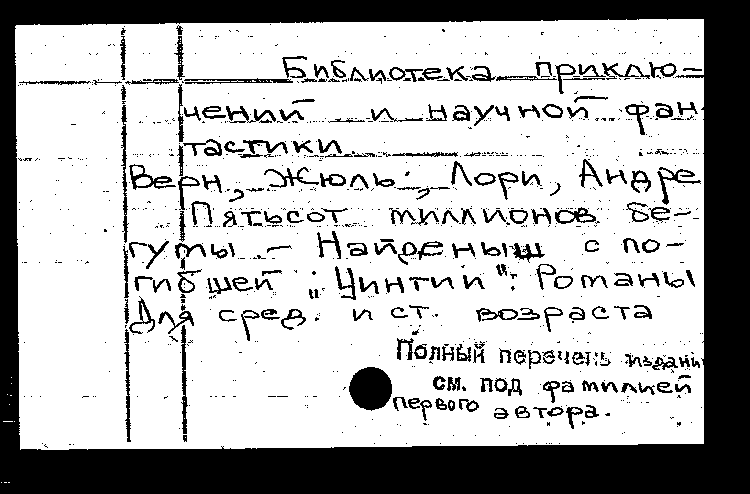 Библиотека приклю-
чений и научной фан-
тастики.
Верн, Жюль; Лори, Андре
Пятьсот миллионов бе-
гумы. - Найденыш с по-
гибшей „Цинтии": Романы
Для сред. и ст. возраста
Полный перечень издани
см. под фамилией
первого автора.